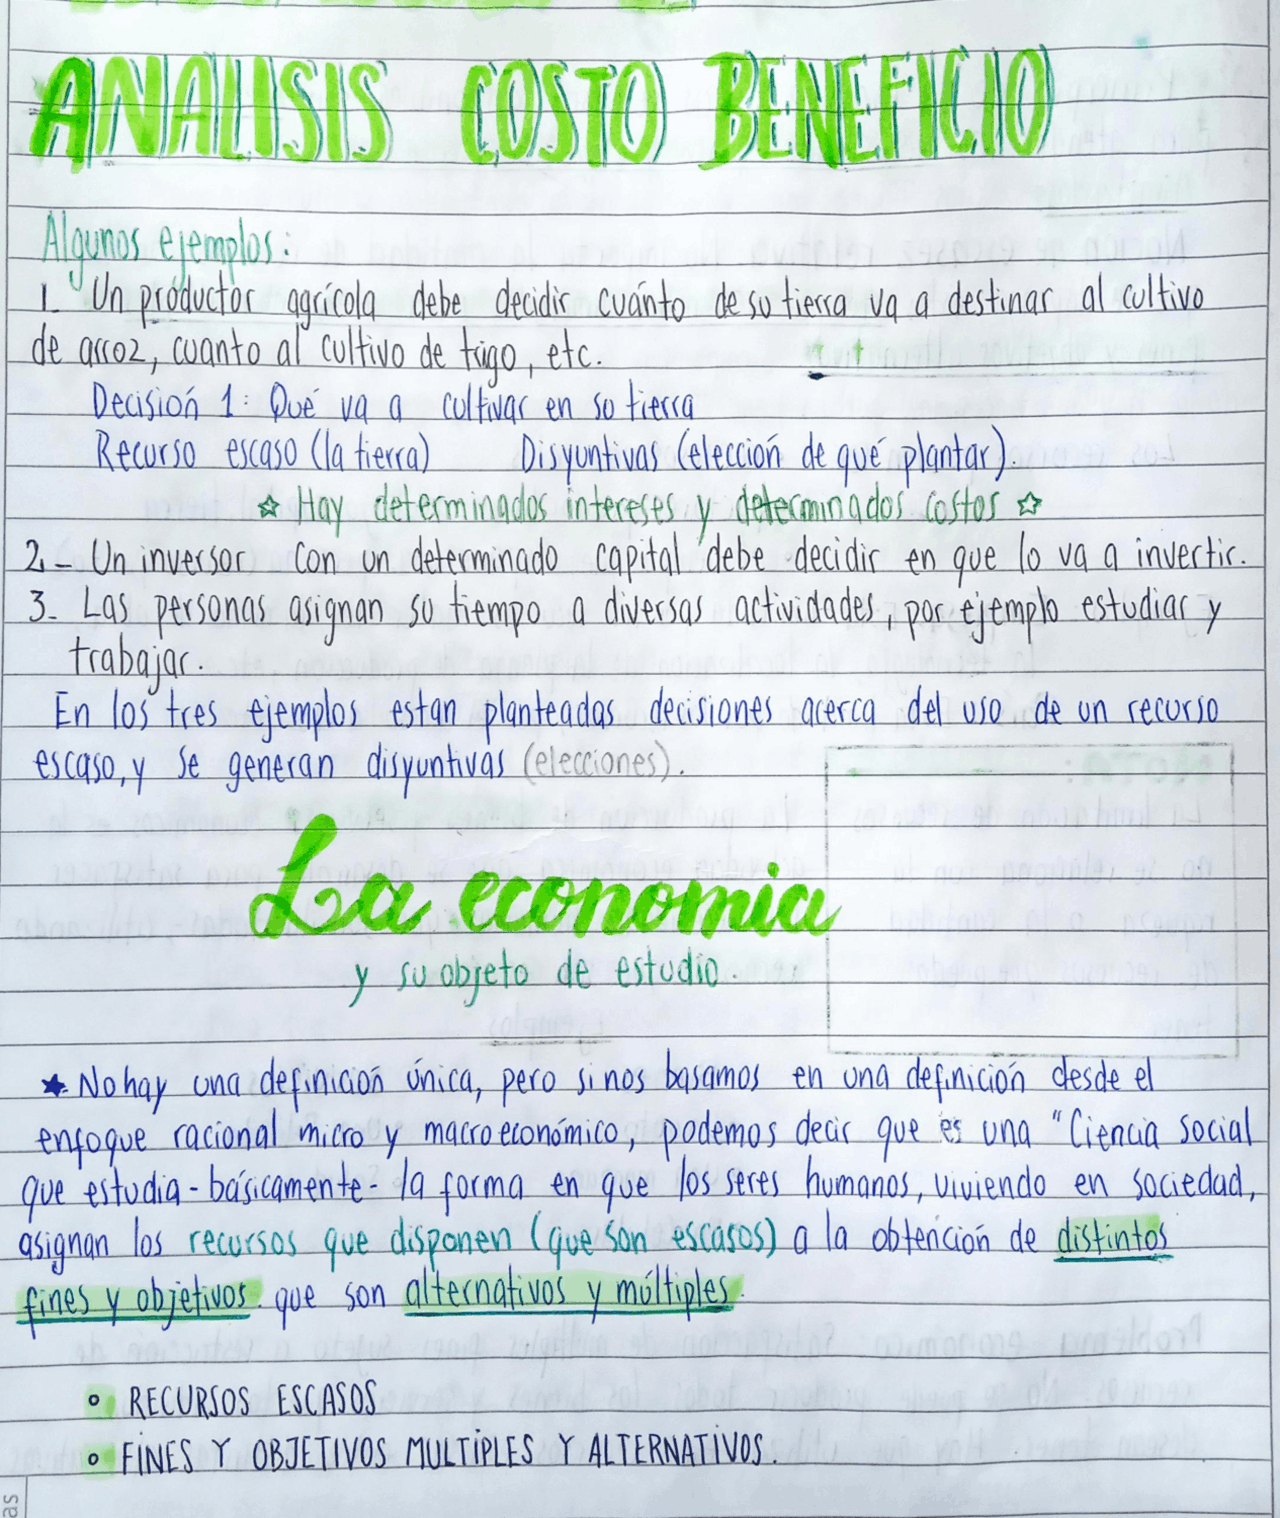 ANALISIS COSTO BENEFICIO
Algunos ejemplos:
1_ Un productor agrícola debe decidir cuánto de su tierra va a destinar al cultivo
de arroz, cuanto al cultivo de trigo, etc.
Decisión 1: Qué va a cultivar en su tierra
Recurso escaso (la tierra) Disyuntivas (elección de qué plantar).
☆ Hay determinados intereses y determinados costos ☆
2_ Un inversor con un determinado capital debe decidir en que lo va a invertir.
3_ Las personas asignan su tiempo a diversas actividades, por ejemplo estudiar y
trabajar.
En los tres ejemplos estan planteadas decisiones acerca del uso de un recurso
escaso, y se generan disyuntivas (elecciones).
La economia
y su objeto de estudio.
★ No hay una definición única, pero si nos basamos en una definición desde el
enfoque racional micro y macroeconómico, podemos decir que es una "Ciencia social
que estudia - básicamente - la forma en que los seres humanos, viviendo en sociedad,
asignan los recursos que disponen (que son escasos) a la obtención de distintos
fines y objetivos que son alternativos y múltiples.
° RECURSOS ESCASOS
° FINES Y OBJETIVOS MULTIPLES Y ALTERNATIVOS.
as